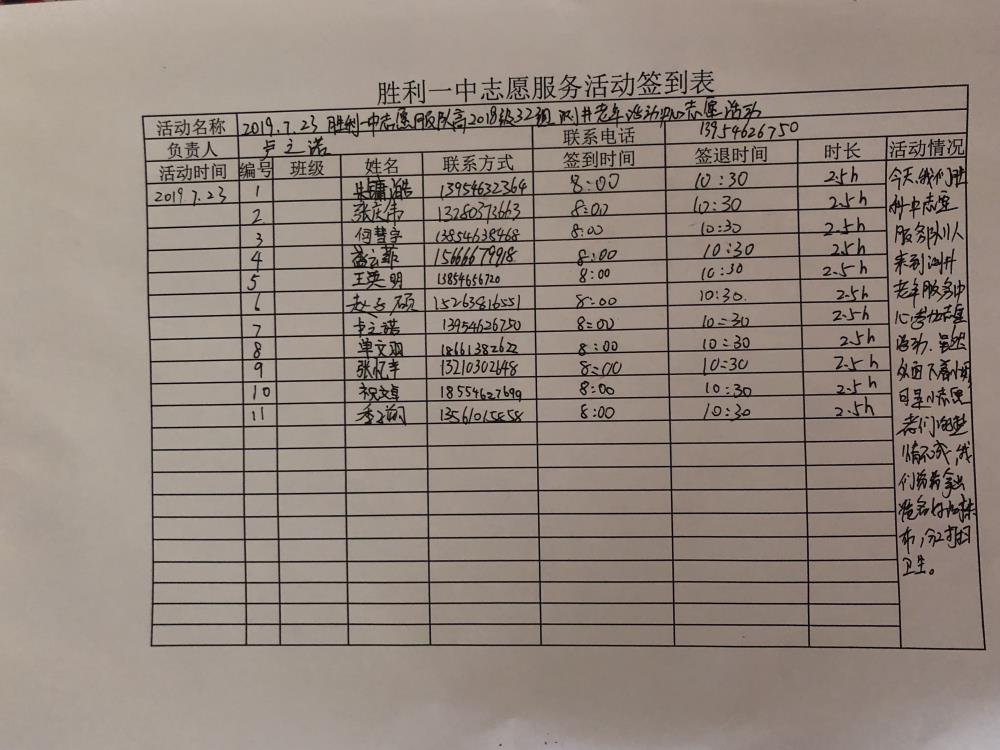 胜利一中志愿服务活动签到表
活动名称 2019.7.23 胜利一中志愿服务队高2018级32班 井老年活动中心志愿活动
负责人 卢之诺 联系电话 13954626750
活动时间 编号 班级 姓名 联系方式 签到时间 签退时间 时长 活动情况
2019.7.23 1 13954632364 8:00 10:30 2.5h
2 张庆伟 13280373663 8:00 10:30 2.5h
3 何慧宇 13854638468 8:00 10:30 2.5h
4 15666679918 8:00 10:30 2.5h
5 王英明 13854656720 8:00 10:30 2.5h
6 赵子硕 15263816551 8:00 10:30. 2.5h
7 卢之诺 13954626750 8:00 10:30 2.5h
8 单文羽 18661382622 8:00 10:30 2.5h
9 张忆宇 13210302648 8:00 10:30 2.5h
10 祝文卓 18554627699 8:00 10:30 2.5h
11 季子翔 13561015858 8:00 10:30 2.5h
今天,我们胜
利一中志愿
服务队11人
来到 井
老年服务中
心参加志愿
活动.虽然
外面下着小雨,
可是小志愿
者们的热
情不减,我
们 拿出
准备好的抹
布,分工打扫
卫生。